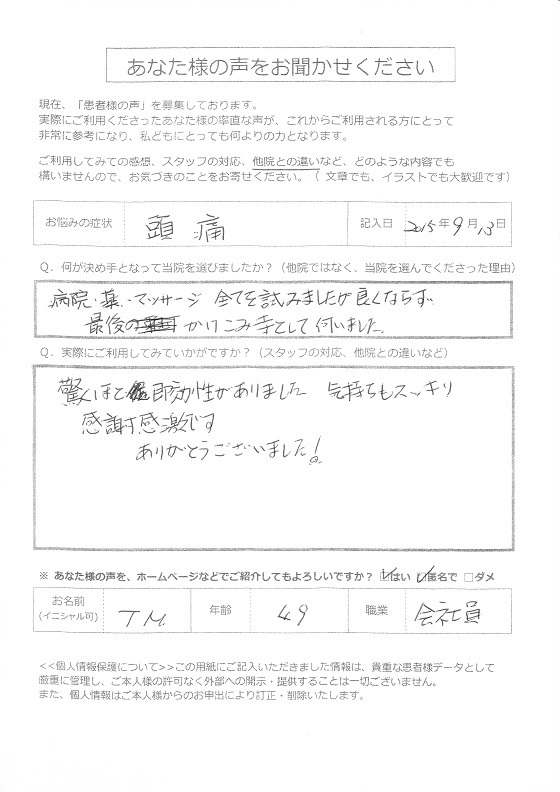 あなた様の声をお聞かせください
現在、「患者様の声」を募集しております。
実際にご利用くださったあなた様の率直な声が、これからご利用される方にとって
非常に参考になり、私どもにとっても何よりの力となります。
ご利用してみての感想、スタッフの対応、他院との違いなど、どのような内容でも
構いませんので、お気づきのことをお寄せください。（ 文章でも、イラストでも大歓迎です）
お悩みの症状 頭痛 記入日 2015年9月13日
Q．何が決め手となって当院を選びましたか？（他院ではなく、当院を選んでくださった理由）
病院・薬・マッサージ 全てを試みましたが良くならず
最後の かけこみ寺として伺いました。
Q．実際にご利用してみていかがですか？（スタッフの対応、他院との違いなど）
驚くほど 即効性がありました 気持ちもスッキリ
感謝感激です
ありがとうございました！
※ あなた様の声を、ホームページなどでご紹介してもよろしいですか？ ☑はい ☑匿名で □ダメ
お名前 (イニシャル可) T.M. 年齢 49 職業 会社員
<<個人情報保護について>>この用紙にご記入いただきました情報は、貴重な患者様データとして
厳重に管理し、ご本人様の許可なく外部への開示・提供することは一切ございません。
また、個人情報はご本人様からのお申出により訂正・削除いたします。